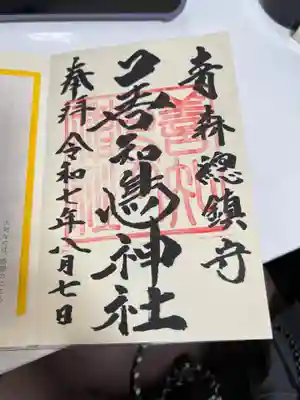 青森總鎮守
善知鳥神社
奉拝 令和七年八月七日